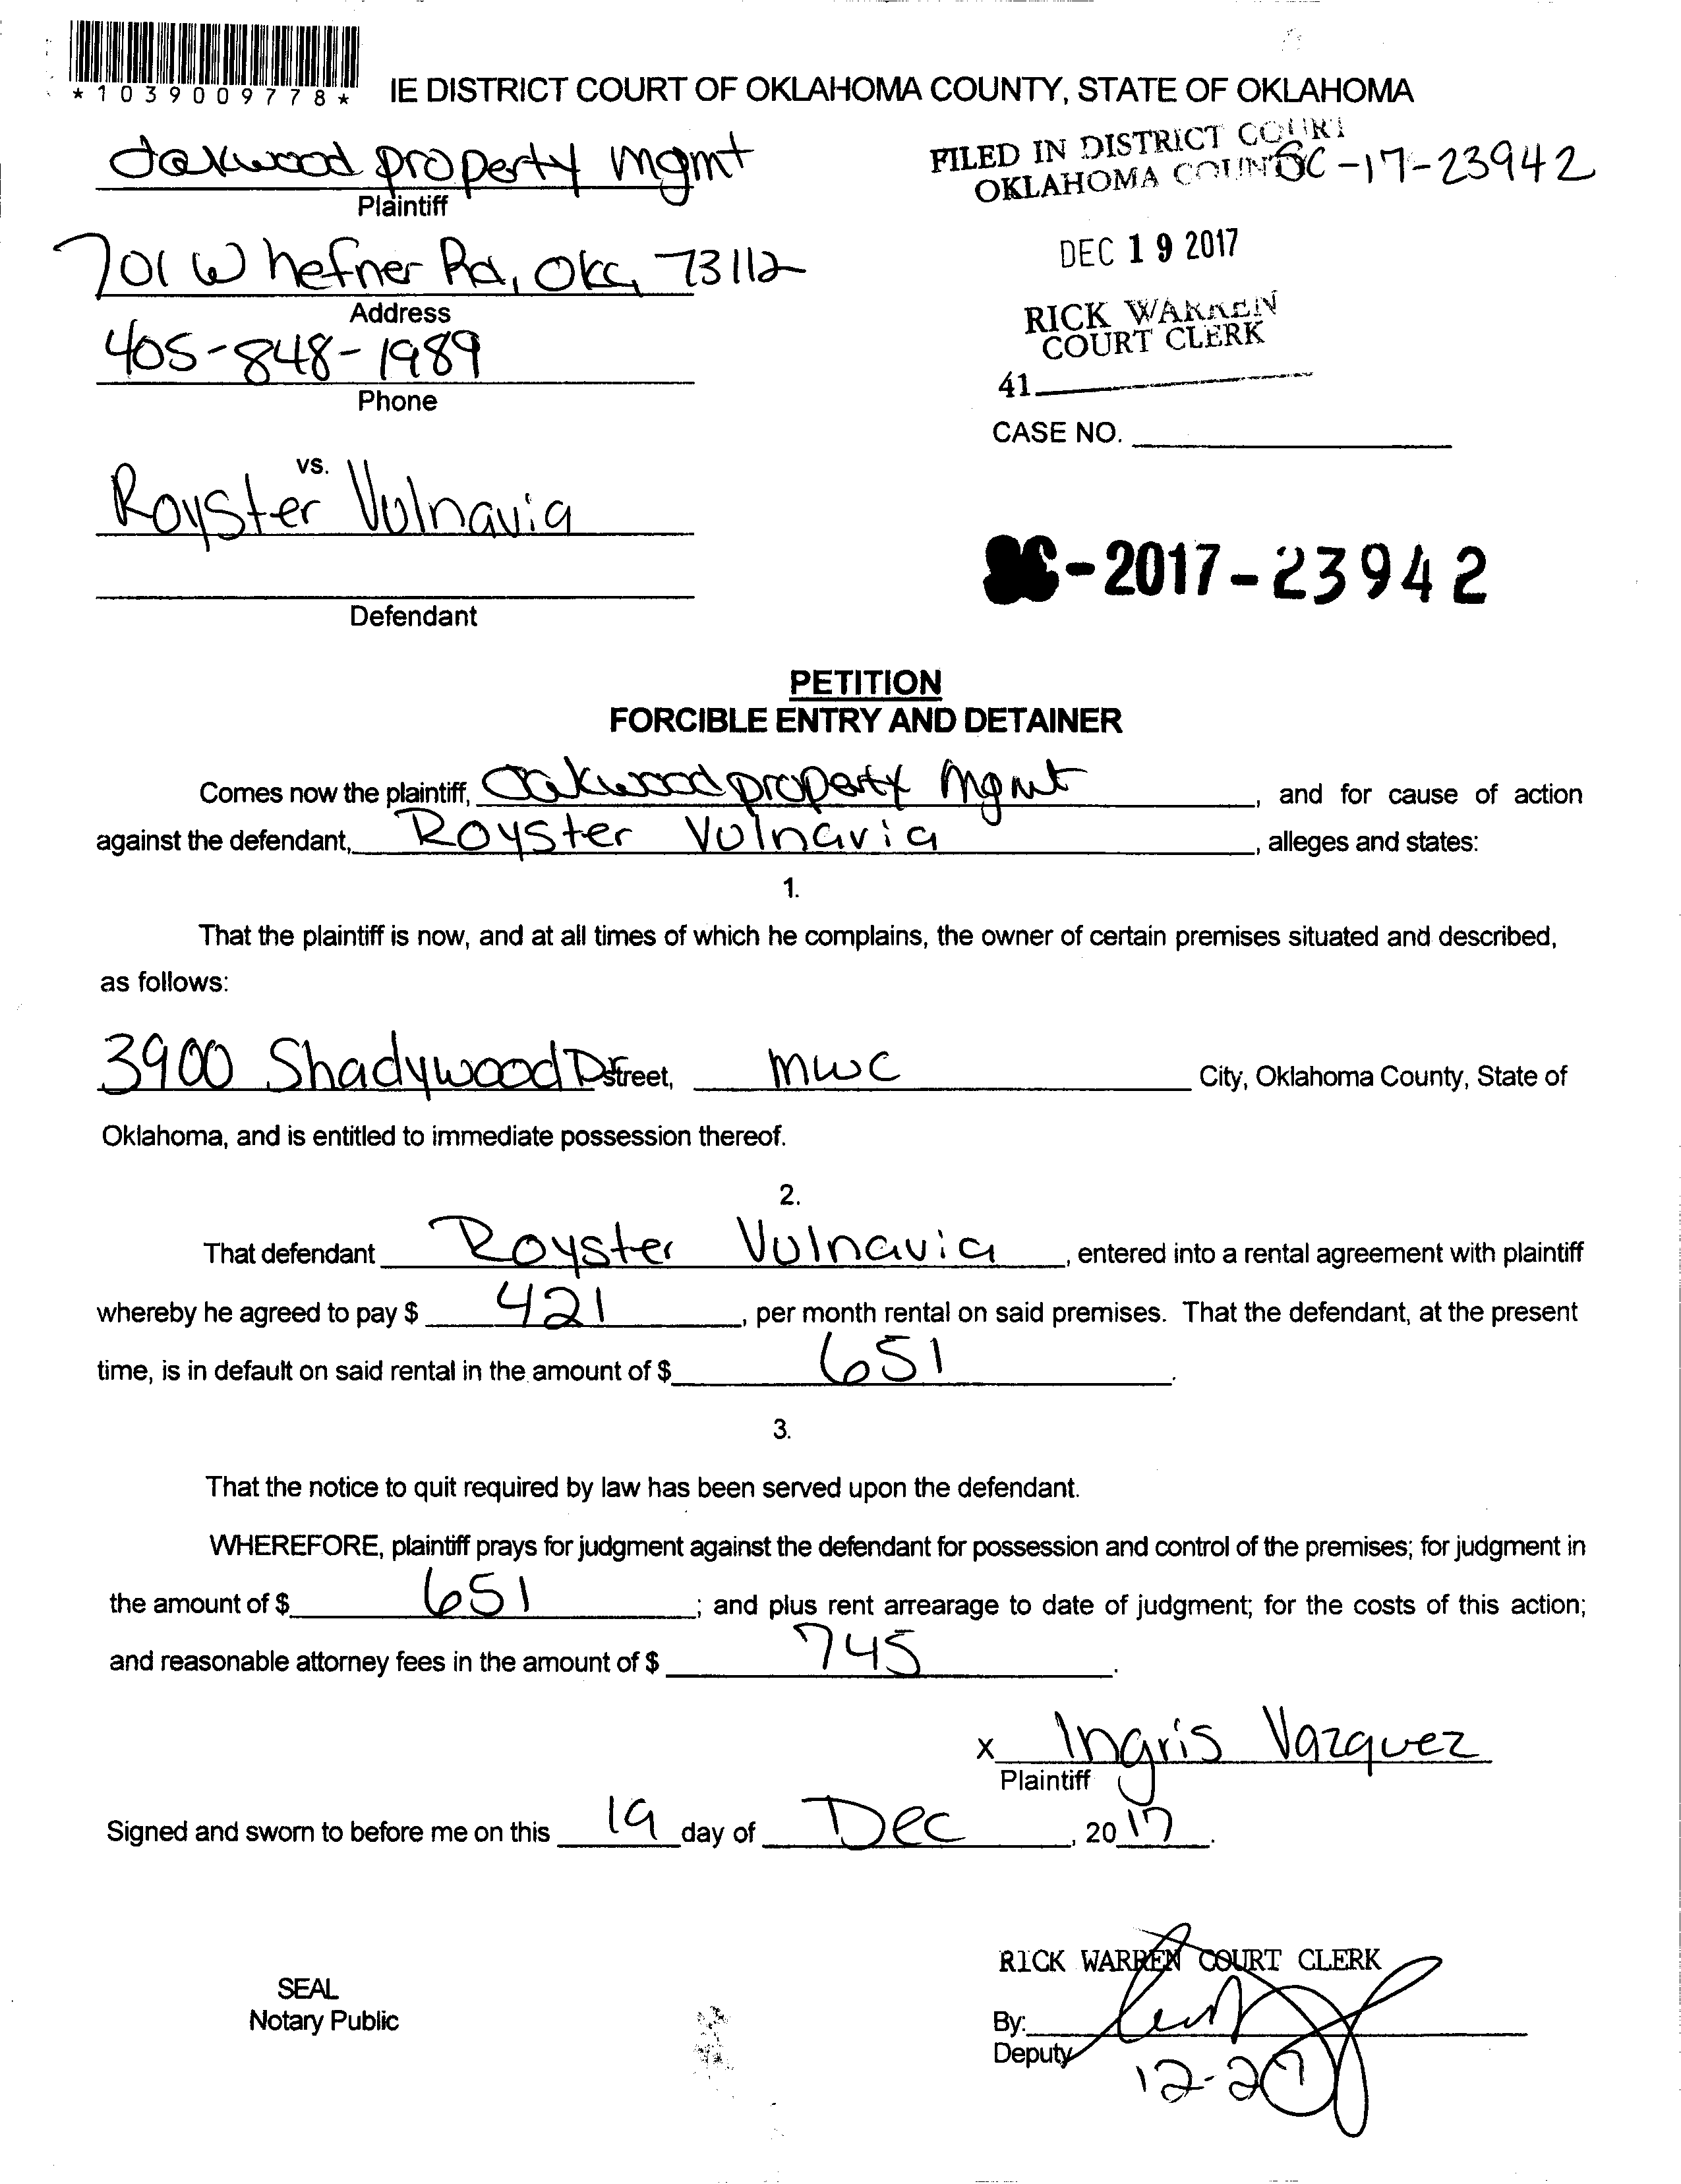 *1039009778*
IE DISTRICT COURT OF OKLAHOMA COUNTY, STATE OF OKLAHOMA
Oakwood property mgmt
Plaintiff
FILED IN DISTRICT COURT
OKLAHOMA COUNTY
SC-17-23942
701 W hefner Rd, OKC, 73112
Address
DEC 19 2017
405-848-1989
Phone
RICK WARREN
COURT CLERK
41
CASE NO.
vs.
Royster Vulnavia
Defendant
SC-2017-23942
PETITION
FORCIBLE ENTRY AND DETAINER
Comes now the plaintiff, Oakwood property Mgmt, and for cause of action
against the defendant, Royster Vulnavia, alleges and states:
1.
That the plaintiff is now, and at all times of which he complains, the owner of certain premises situated and described,
as follows:
3900 Shadywood Dr Street, MWC City, Oklahoma County, State of
Oklahoma, and is entitled to immediate possession thereof.
2.
That defendant Royster Vulnavia, entered into a rental agreement with plaintiff
whereby he agreed to pay $ 421, per month rental on said premises. That the defendant, at the present
time, is in default on said rental in the amount of $ 651.
3.
That the notice to quit required by law has been served upon the defendant.
WHEREFORE, plaintiff prays for judgment against the defendant for possession and control of the premises; for judgment in
the amount of $ 651; and plus rent arrearage to date of judgment; for the costs of this action;
and reasonable attorney fees in the amount of $ 745.
x Ingris Vazquez
Plaintiff
Signed and sworn to before me on this 19 day of Dec, 2017.
RICK WARREN COURT CLERK
SEAL
Notary Public
By:
Deputy
12-27